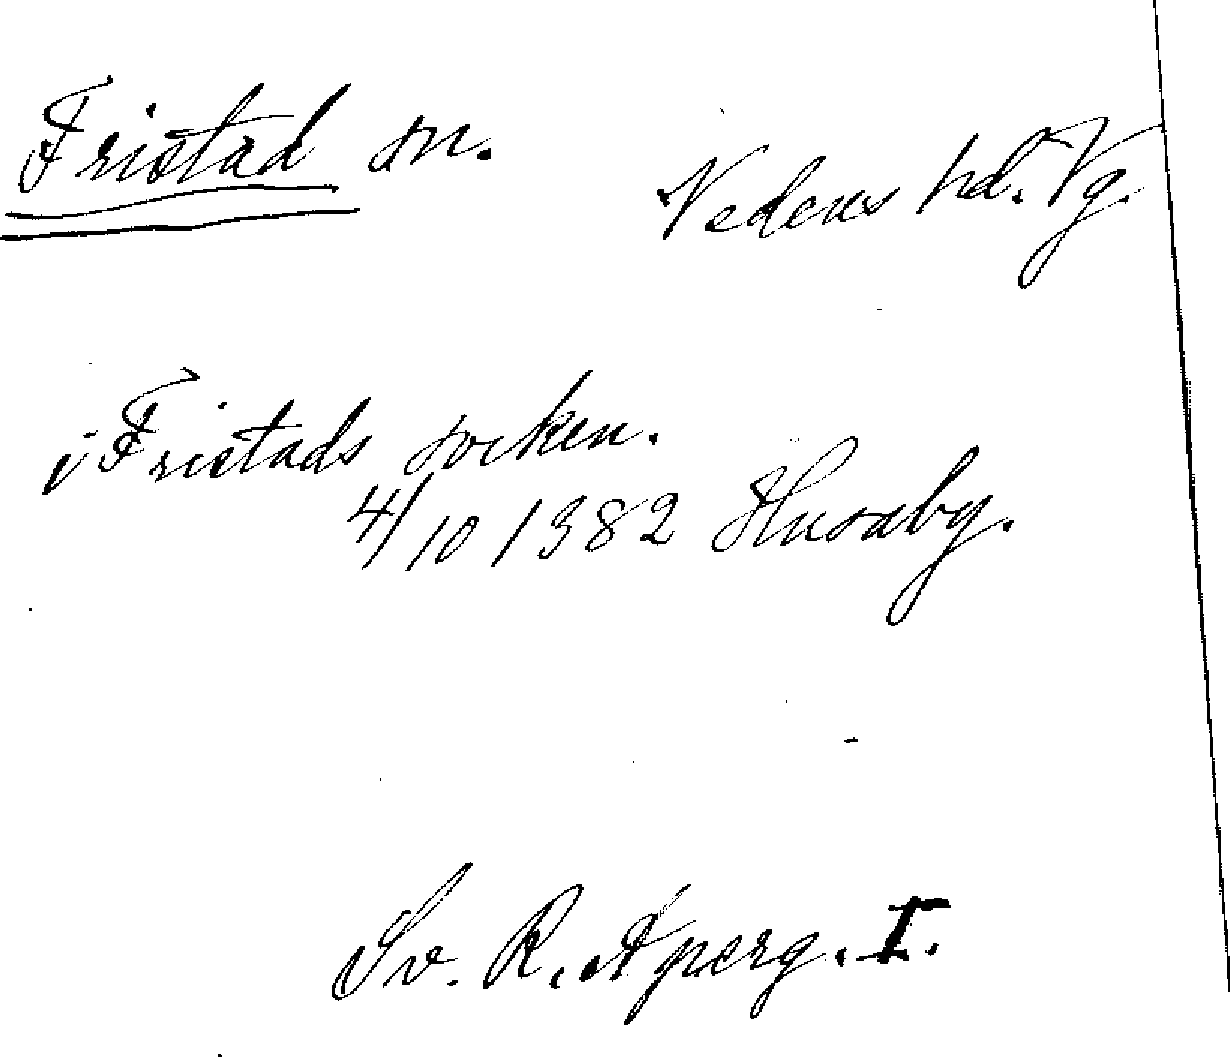 Fristad sn. Vedens hd. Vg.
i Fristads socken.
4/10 1382 Husaby.
Sv. R. Aperg. I.